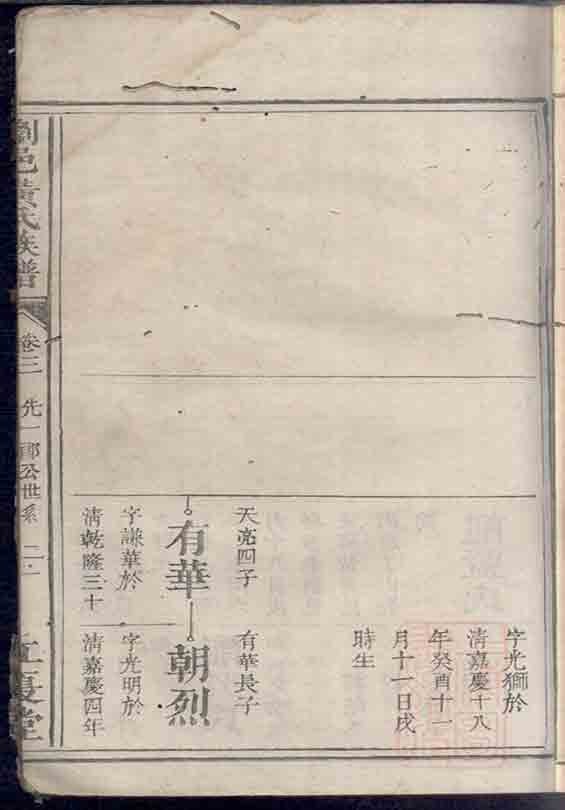 字光獅於
清嘉慶十八
年癸酉十一
月十一日戌
時生
天亮四子
有華
字謙華於
清乾隆三十
有華長子
朝烈
字光明於
清嘉慶四年
瀏邑黃氏族譜
卷三
先一郎公世系
江夏堂